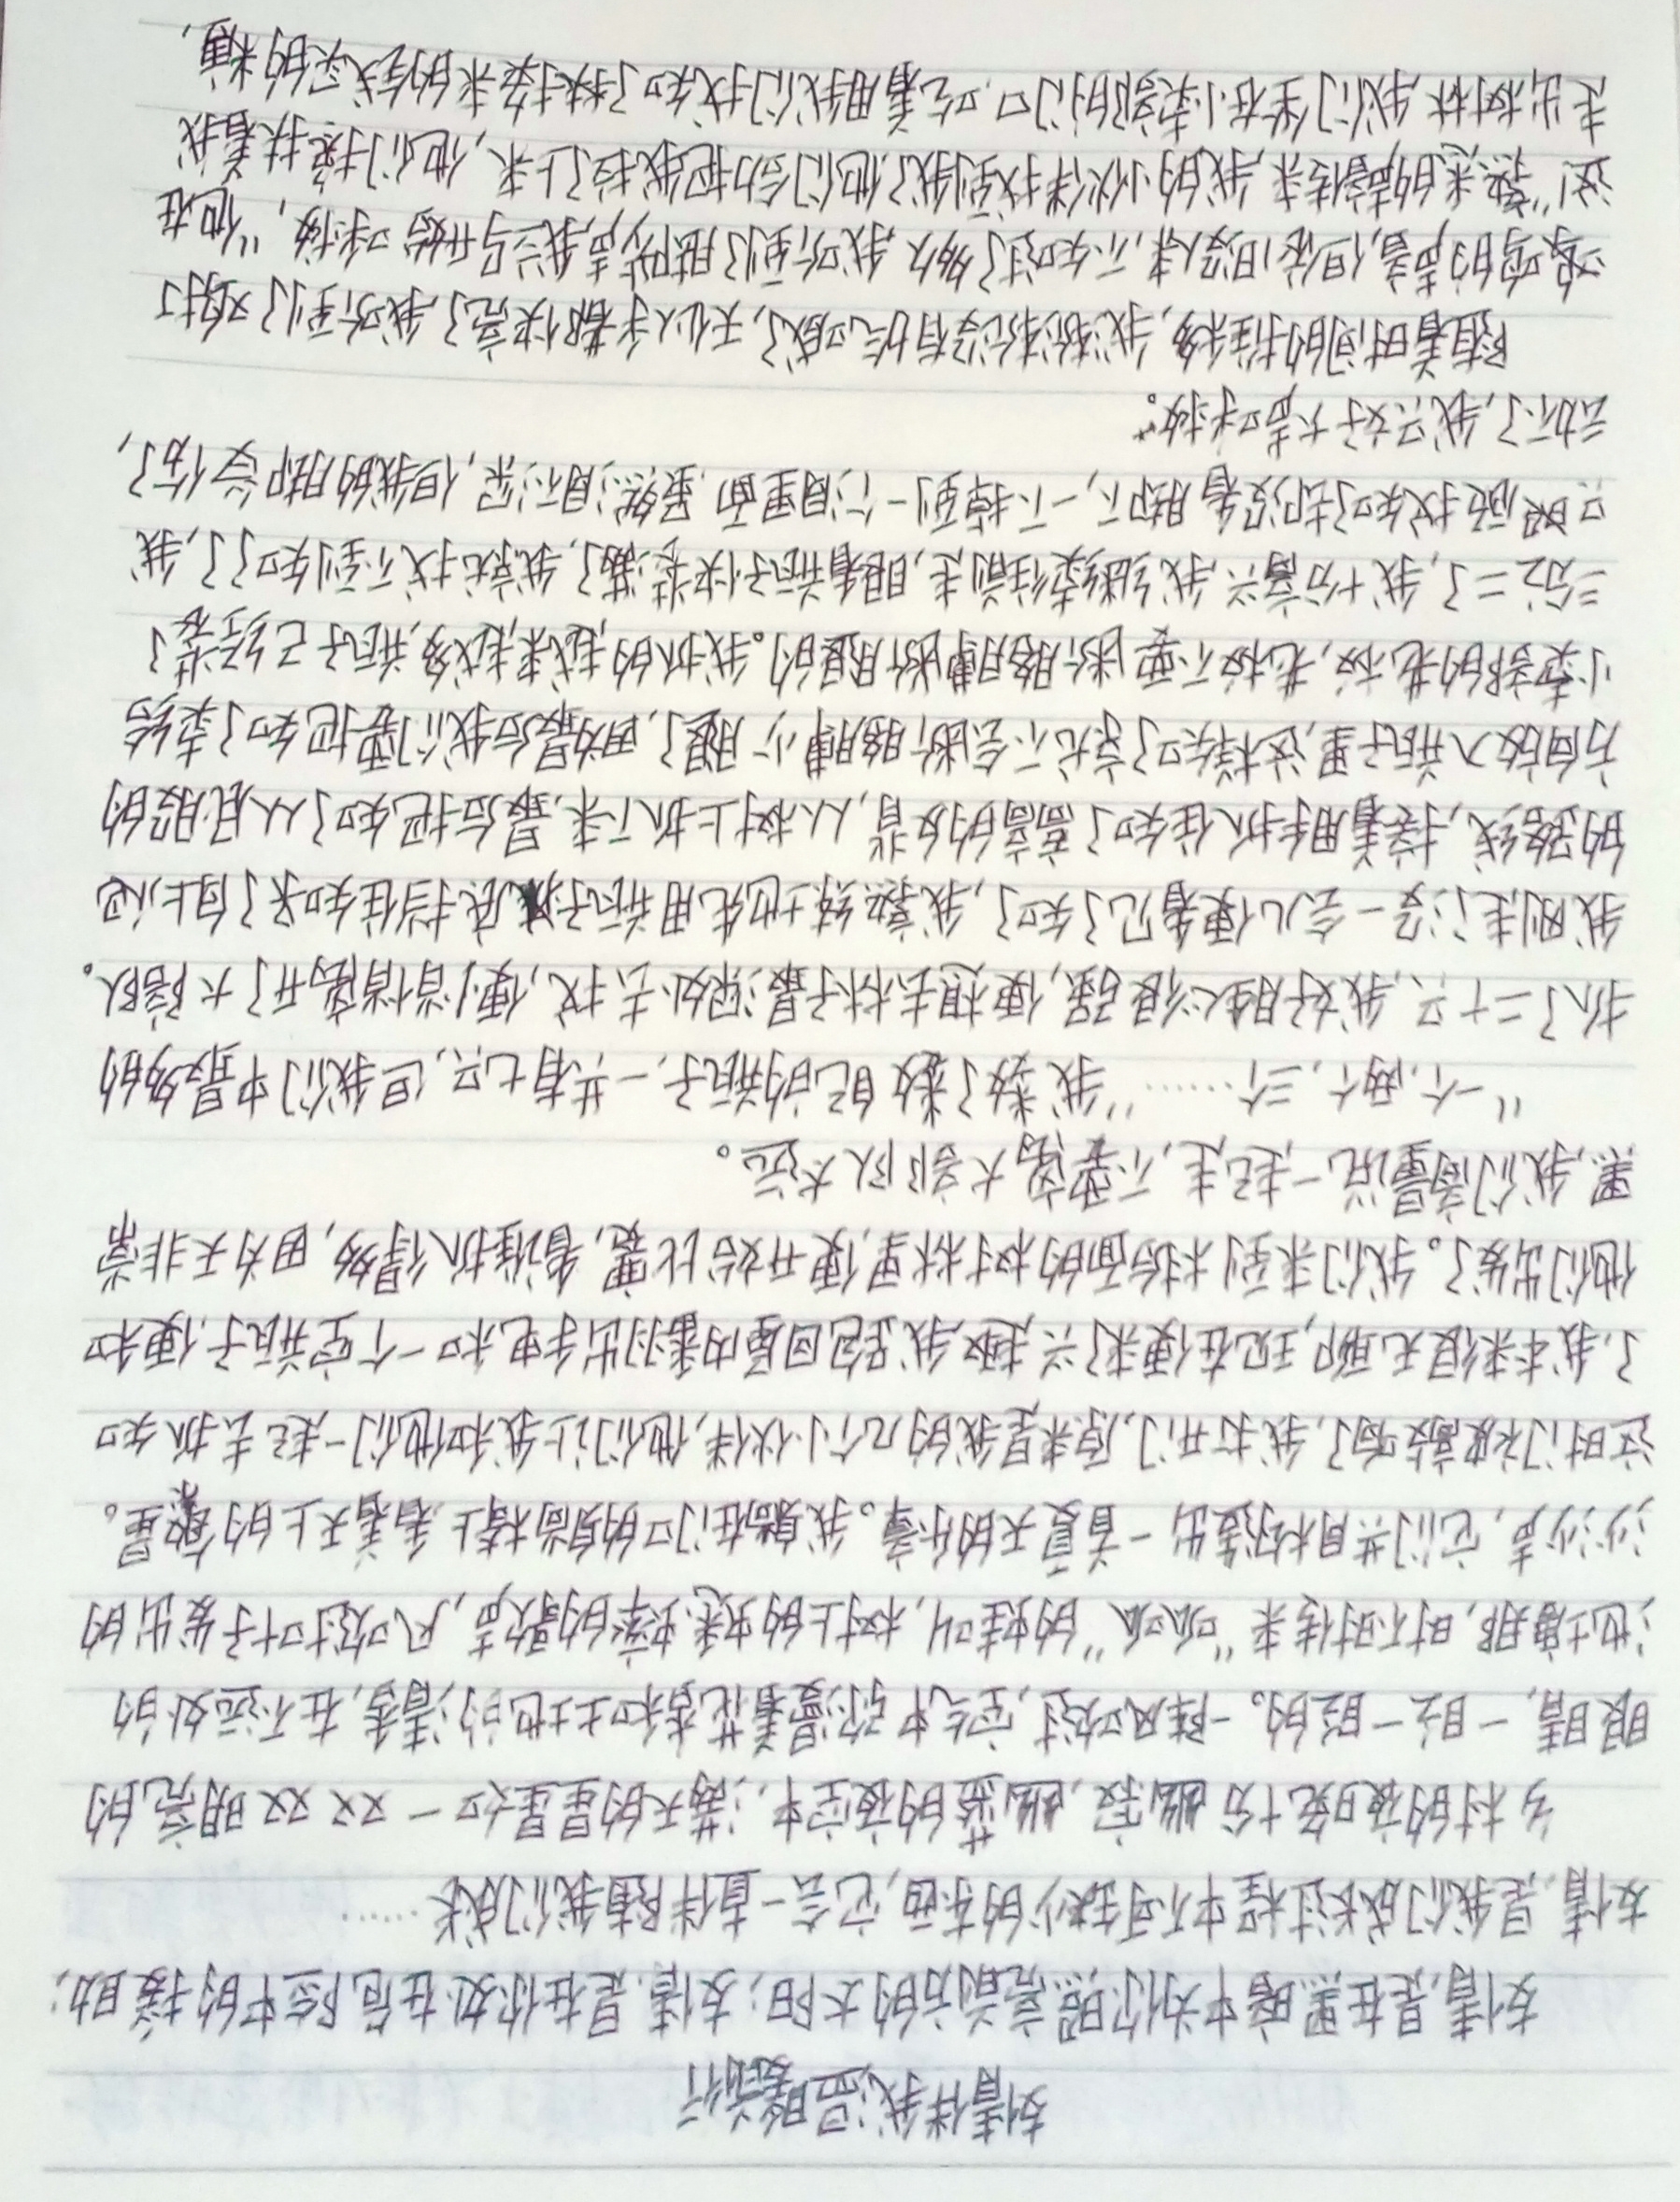 友情伴我温暖前行
友情,是在黑暗中为你照亮前方的太阳;友情,是在你处在危险中的援助;
友情,是我们成长过程中不可缺少的东西,它会一直伴随我们成长……
乡村的夜晚十分幽寂,幽蓝的夜空中,满天的星星如一双双明亮的
眼睛,一眨一眨的。一阵风吹过,空气中弥漫着花香和土地的清香,在不远处的
池塘那,时不时传来“呱呱”的蛙叫,树上的蟋蟀的歌声,风吹过叶子发出的
沙沙声,它们共同构造出一首夏天的乐章。我躺在门口的角落椅上,看着天上的繁星。
这时门被敲响了,我打开门,原来是我的几个小伙伴,他们让我和他们一起去抓知
了,我本来很无聊,现在便来了兴趣,我跑回屋内拿出手电和一个空瓶子,便和
他们出发了。我们来到村后面的树林里,便开始比赛,看谁抓得多,因为天非常
黑,我们商量说一起走,不要离大部队太远。
“一个,两个,三个……”我数了数自己的瓶子,一共有七只,但我们中最多的
抓了二十只,我好胜心很强,便想去林子最深处去找,便悄悄离开了大部队。
我刚走了没一会儿便看见了知了,我熟练地先用瓶子底挡住知了向上爬
的路线,接着用手抓住知了高高的后背,从树上抓下来,最后把知了从屁股的
方向放入瓶子里,这样知了就不会断胳膊少腿了,因为最后我们要把知了卖给
小卖部的老板,老板不要断胳膊断腿的。我抓的越来越多,瓶子已经装了
三分之二了,我十分高兴,我继续往前走,眼看瓶子快装满了,我就找不到知了了,我
只顾找知了却没看脚下,一下掉到一个洞里面,虽然洞不深,但我的脚受伤了,
动不了,我只好大声呼救。
随着时间的推移,我渐渐没有力气喊了,天似乎都快亮了,我听到了鸡打
鸣的声音,但依旧没人来,不知过了多久,我听到了脚步声,我立马开始呼救,“他在
这!”熟悉的声音传来,我的小伙伴找到我了,他们合力把我拉了上来,他们搀扶着我
走出树林,我们坐在小卖部的门口,吃着用我们找知了换来的钱买的辣